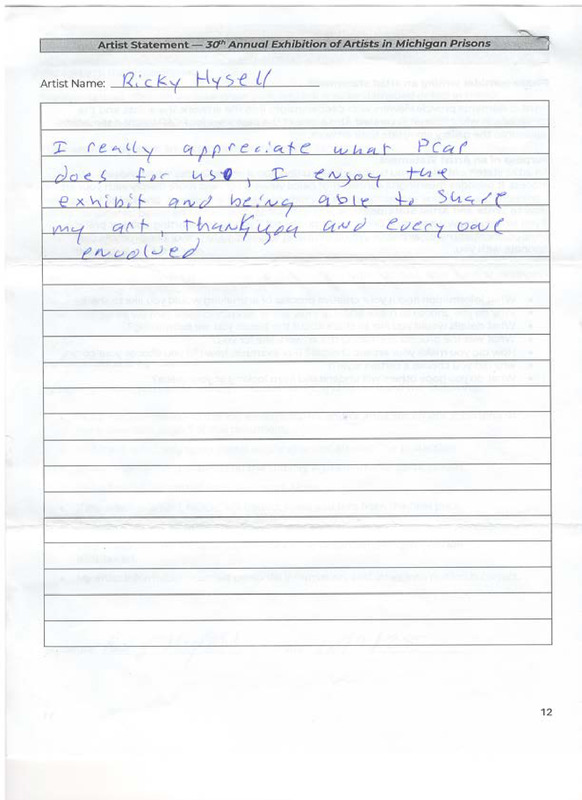 Artist Statement — 30th Annual Exhibition of Artists in Michigan Prisons
Artist Name: Ricky Hysell
I really appreciate what Pcap
does for us, I enjoy the
exhibit and being able to share
my art, thankyou and every one
envolved
12